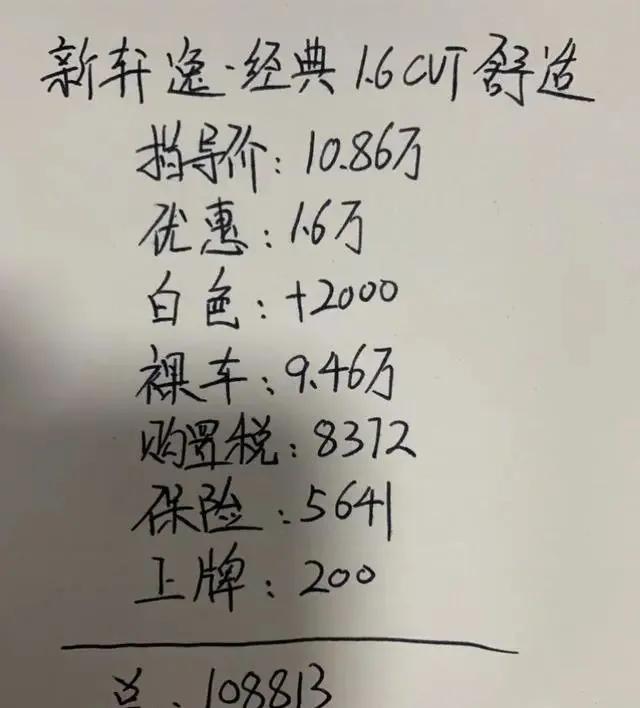 新轩逸·经典 1.6 CVT 舒适
指导价：10.86万
优惠：1.6万
白色：+2000
裸车：9.46万
购置税：8372
保险：5641
上牌：200
总：108813